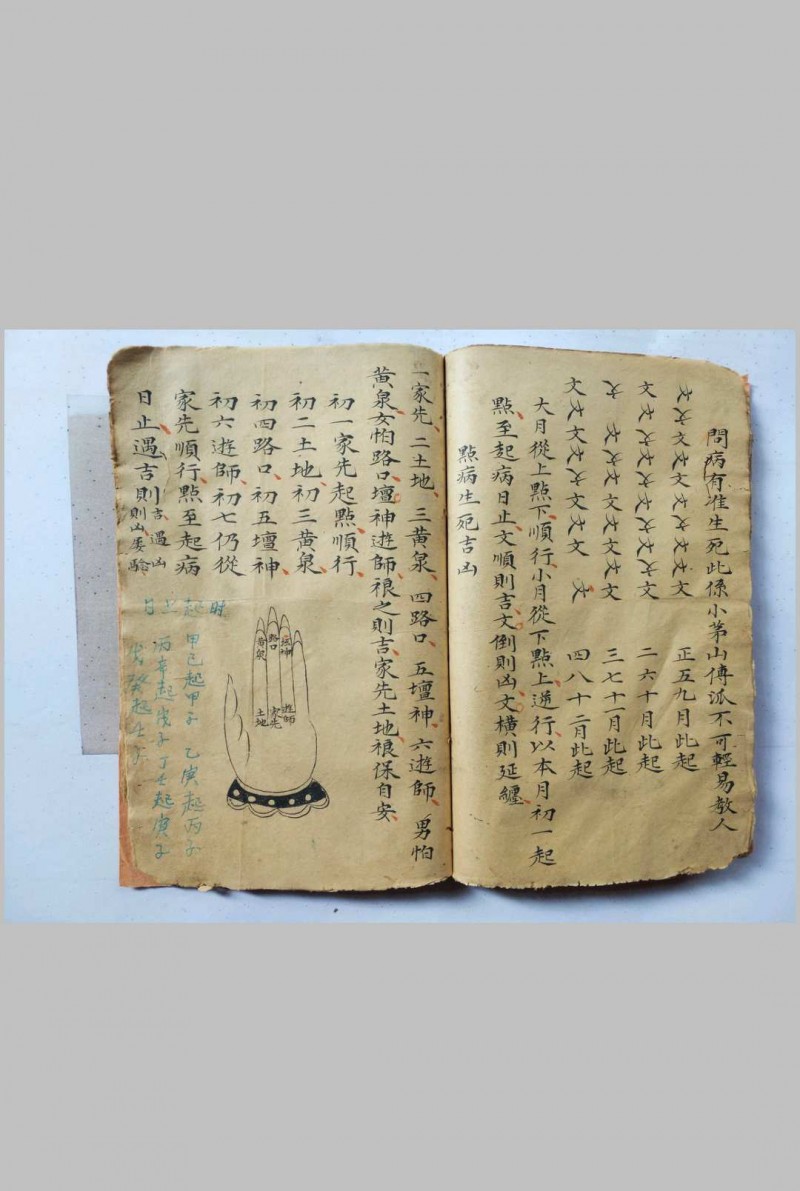 問病有准生死此係小茅山傅派不可輕易教人
正五九月此起
文 二六十月此起
三七十一月此起
文 文文 四八十二月此起
大月從上點下順行小月從下點上逆行以本月初一起
點至起病日止文順則吉文倒則凶文橫則延纏
點病生死吉凶
一家先、二土地、三黃泉 四路口、五壇神、六遊師、男怕
黃泉女怕路口壇神遊師禳之則吉家先土地禳保自安
初一家先起點順行
初二土地、初三黃泉
初四路口、初五壇神
初六遊師、初七仍從
家先順行、點至起病
日止遇吉則吉遇凶則凶屡驗
家先
土地
黃泉
路口
壇神
遊師
时
起 甲己起甲子 乙庚起丙子
日上 丙辛起戊子 丁壬起庚子
戊癸起壬子